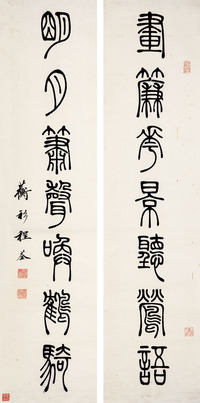 畫簾花景聽鶯語
明月簫聲喚鶴騎
蘅衫程荃